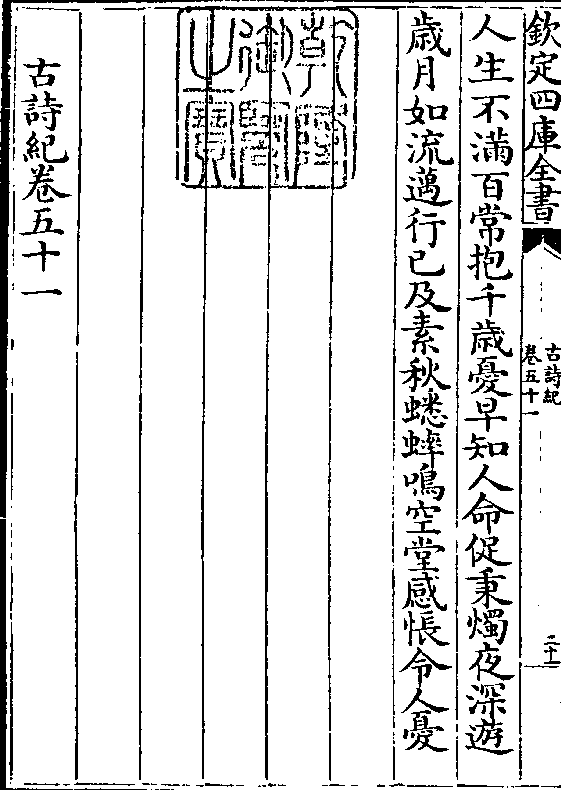 欽定四庫全書
古詩紀
卷五十一
二十一
人生不滿百常抱千歲憂早知人命促秉燭夜深遊
歲月如流邁行已及素秋蟋蟀鳴空堂感悵令人憂
乾隆
御覽
之寶
古詩紀卷五十一